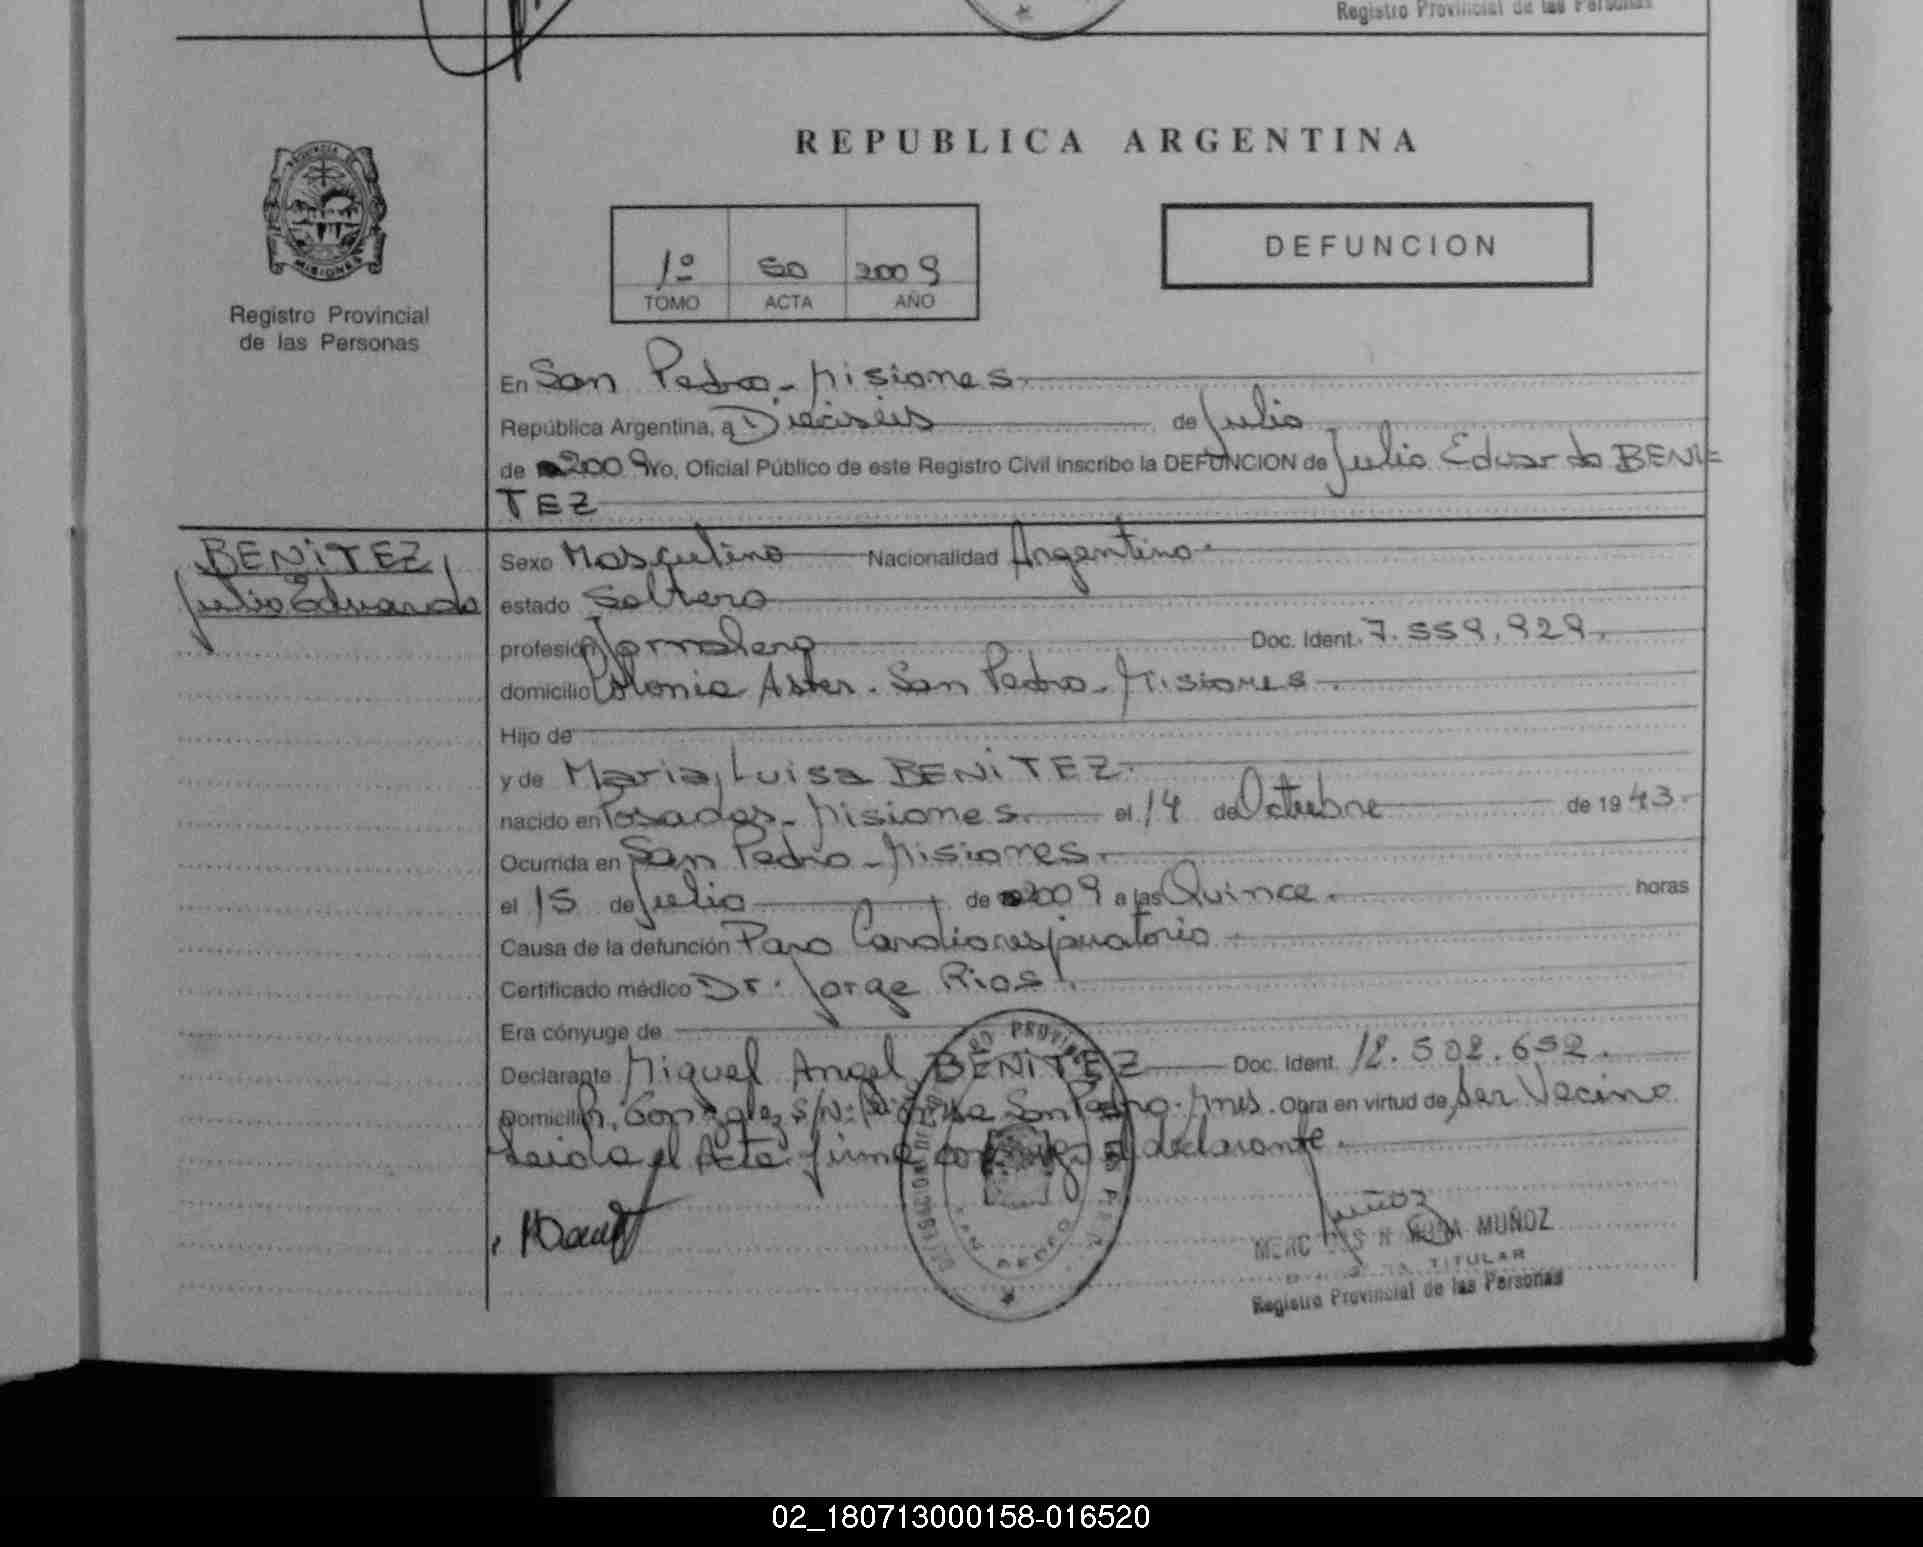 Registro Provincial de las Personas
REPUBLICA ARGENTINA
PROVINCIA DE
MISIONES
Registro Provincial
de las Personas
1º 50 2009
TOMO ACTA AÑO
DEFUNCION
En San Pedro - Misiones.
República Argentina, a Dieciséis de Julio
de 2009 Yo, Oficial Público de este Registro Civil inscribo la DEFUNCION de Julio Eduardo BENI=
TEZ
BENITEZ,
Julio Eduardo
Sexo Masculino Nacionalidad Argentino.
estado Soltero
profesión Jornalero Doc. Ident. 7.559.929.
domicilio Colonia Aster. San Pedro - Misiones.
Hijo de
y de Maria Luisa BENITEZ.
nacido en Posadas - Misiones. el 14 de Octubre de 1943.
Ocurrida en San Pedro - Misiones.
el 15 de Julio de 2009 a las Quince. horas
Causa de la defunción Paro Cardiorespiratorio
Certificado médico Dr. Jorge Rios.
Era cónyuge de
Declarante Miguel Angel BENITEZ Doc. Ident. 12.502.652.
Domicilio R. Gonzalez S/Nº San Pedro. Mnes. Obra en virtud de ser Vecino
Leida el Acta firma conmigo el declarante.
SAN PEDRO
Muñoz
MUÑOZ
TITULAR
Registro Provincial de las Personas
02_180713000158-016520